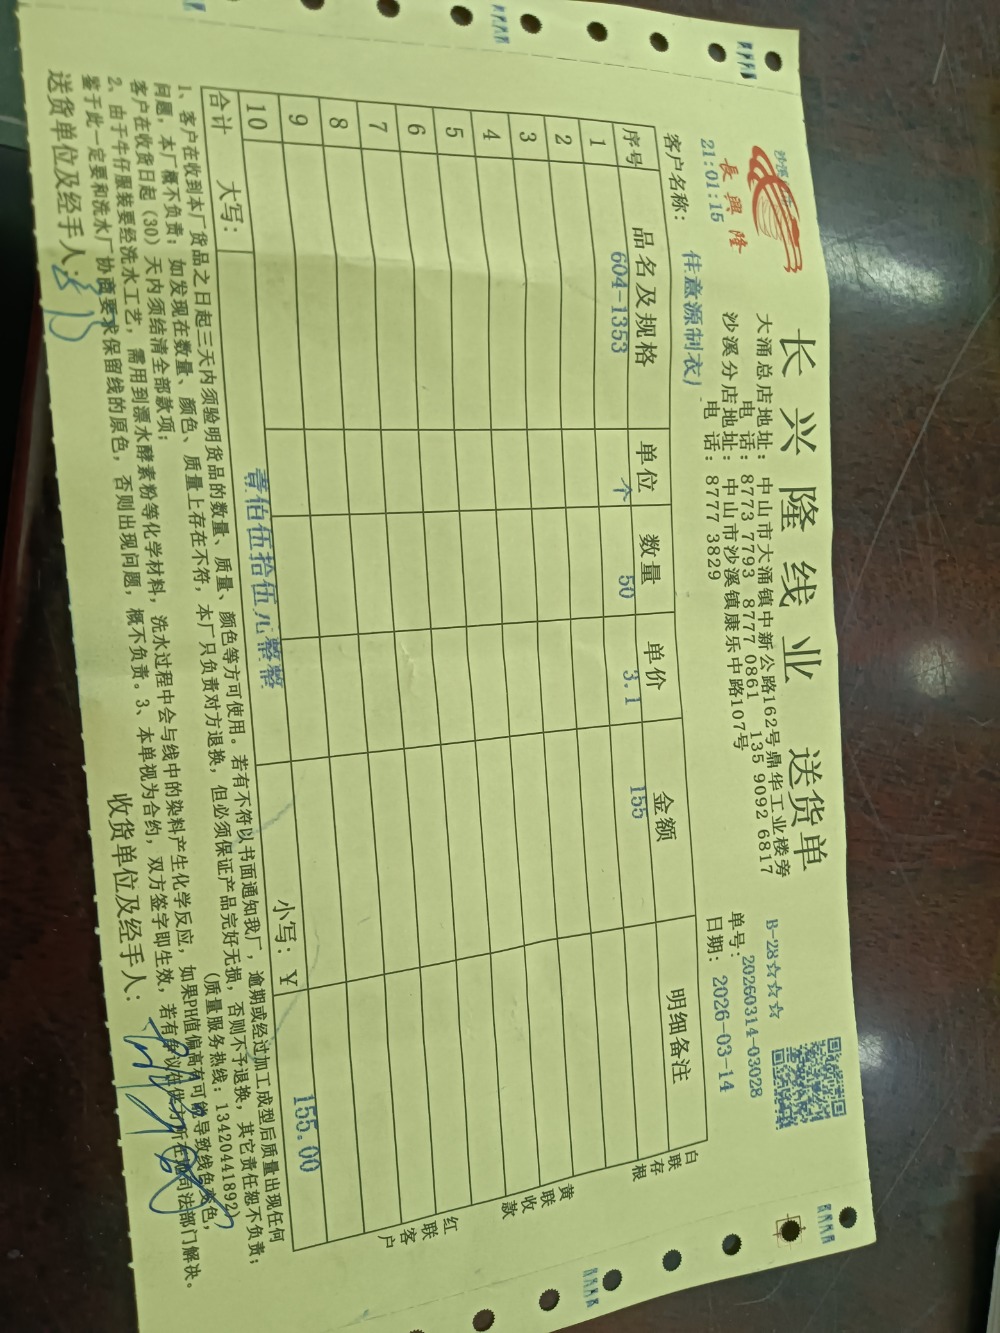 长兴隆线业 送货单
長興隆
21:01:15
大涌总店地址：中山市大涌镇中新公路162号鼎华工业楼旁
电话：8773 7793 8777 0861 135 9092 6817
沙溪分店地址：中山市沙溪镇康乐中路107号
电话：8777 3829
B-28☆☆☆
单号：20260314-03028
日期：2026-03-14
客户名称：佳意源制衣厂
序号 品名及规格 单位 数量 单价 金额 明细备注
1 604-1353 个 50 3.1 155
2
3
4
5
6
7
8
9
10
合计 大写：壹佰伍拾伍元整整 小写：¥ 155.00
白联存根
黄联收款
红联客户
1、客户在收到本厂货品之日起三天内须验明货品的数量、质量、颜色等方可使用。若有不符以书面通知我厂，逾期或经过加工成型后质量出现任何
问题，本厂概不负责；如发现在数量、颜色、质量上存在不符，本厂只负责对方退换，但必须保证产品完好无损，否则不予退换，其它责任恕不负责；
客户在收货日起（30）天内须结清全部款项； （质量服务热线：13420441892）
2、由于牛仔服装要经洗水工艺，需用到漂水酵素粉等化学材料，洗水过程中会与线中的染料产生化学反应，如果PH值偏高有可能导致线色变色，
鉴于此一定要和洗水厂协商要求保留线的原色，否则出现问题，概不负责。3、本单视为合约，双方签字即生效，若有争议由供方所在地司法部门解决。
送货单位及经手人： 收货单位及经手人：